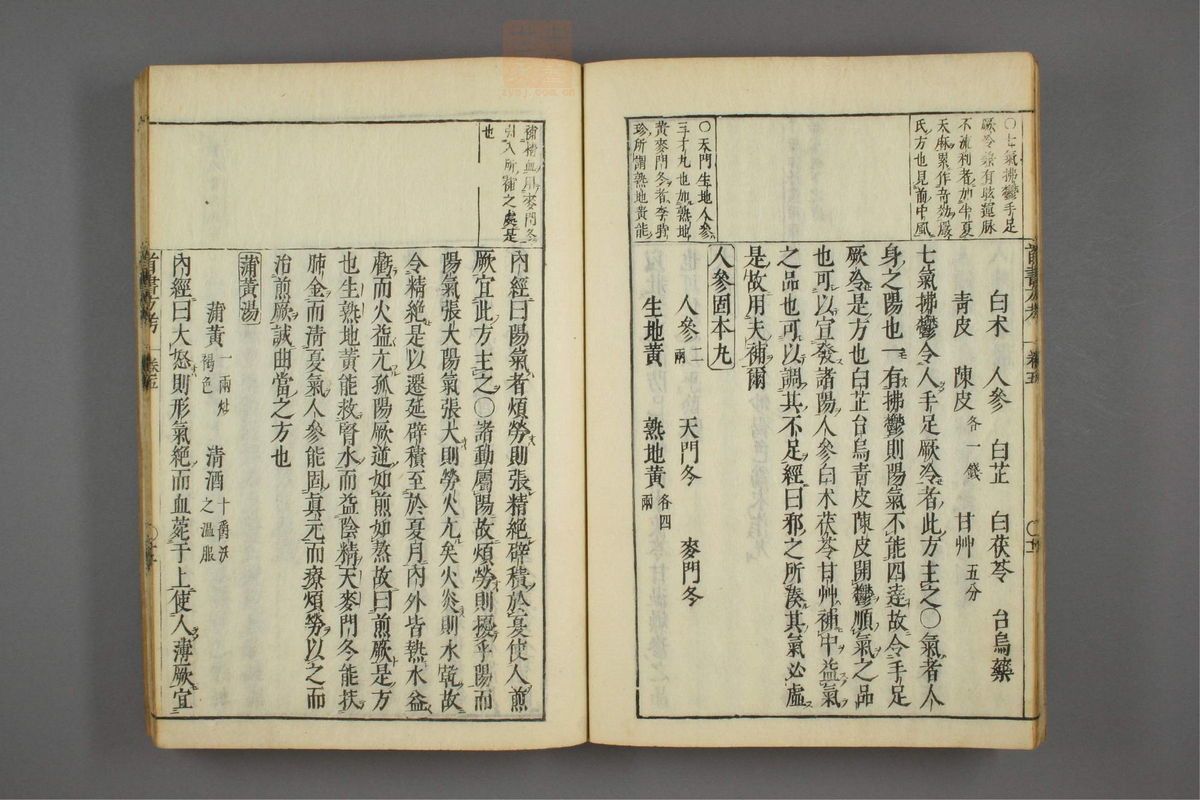 ○七氣拂鬱手足
厥冷兼有眩運脉
不流利者加半夏
天麻累作奇効嚴
氏方也見前中風
○天門生地人參
三才丸也加熟地
黃麥門冬者李時
珍所謂熟地黃能
白术 人參 白芷 白茯苓 台烏藥
青皮 陳皮各一錢 甘艸五分
七氣拂鬱令人手足厥冷者此方主之○氣者人
身之陽也一有拂鬱則陽氣不能四達故令手足
厥冷是方也白芷台烏青皮陳皮開鬱順氣之品
也可以宣發諸陽人參白术茯苓甘艸補中益氣
之品也可以調其不足經曰邪之所湊其氣必虛
是故用夫補爾
人參固本丸
人參二兩 天門冬 麥門冬
生地黃 熟地黃各四兩
補精血用麥門冬
引入所補之處是
也
內經曰陽氣者煩勞則張精絕辟積於夏使人煎
厥宜此方主之○諸動屬陽故煩勞則擾乎陽而
陽氣張大陽氣張大則勞火亢矣火炎則水乾故
令精絕是以遷延辟積至於夏月內外皆熱水益
虧而火益亢孤陽厥逆如煎如熬故曰煎厥是方
也生熟地黃能救腎水而益陰精天麥門冬能扶
肺金而清夏氣人參能固真元而療煩勞以之而
治煎厥誠曲當之方也
蒲黃湯
蒲黃一兩炒褐色 清酒十爵沃之溫服
內經曰大怒則形氣絕而血菀于上使人薄厥宜